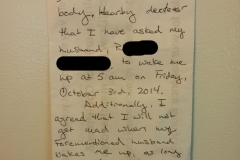 body, hearby declear
that I have asked my
husband, R
to wake me
up at 5 am on Friday,
October 3rd, 2014.
Additionally, I
agree that I will not
get mad when my
forementioned husband
wakes me up, as long